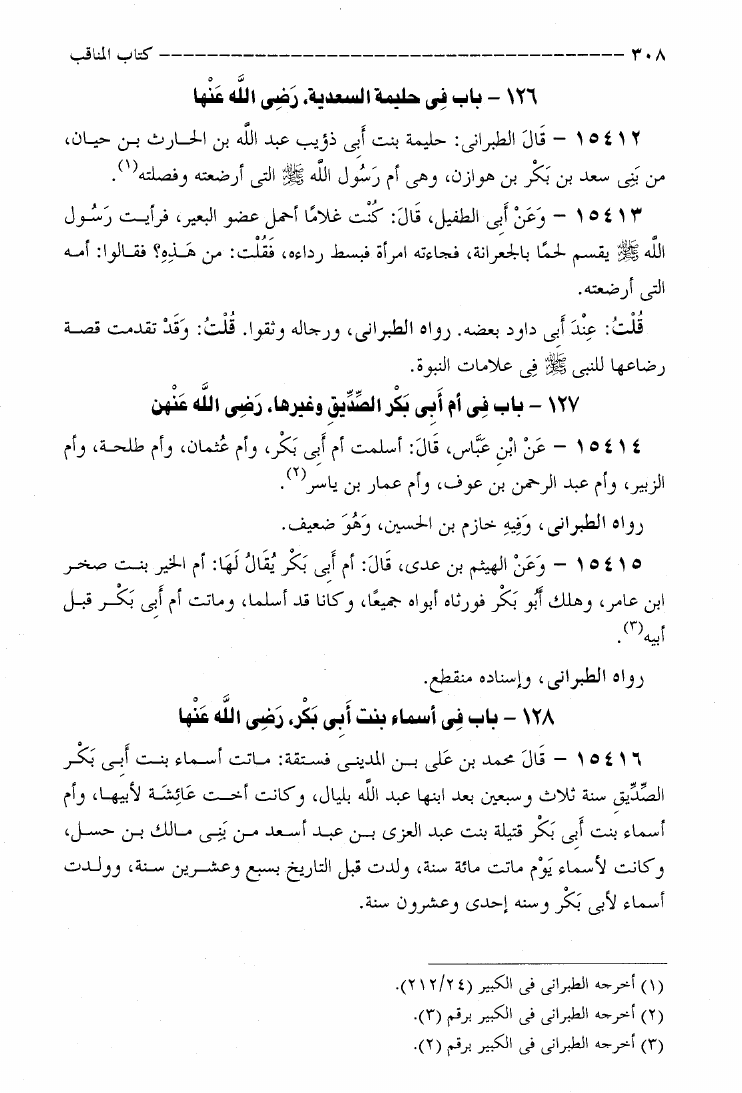 ٣٠٨ ــــــــــــــــــــــــــــــــــــــــــــــــــــــــــ كتاب المناقب
١٢٦ – باب فِى حليمة السعدية، رَضِى اللَّه عَنْها
١٥٤١٢ – قَالَ الطبرانى: حليمة بنت أَبِى ذؤيب عبد اللَّه بن الحارث بـن حيـان،
من بَنِى سعد بن بَكْر بن هوازن، وهى أم رَسُول اللَّه ﷺ التى أرضعته وفصلته(١).
١٥٤١٣ – وَعَنْ أَبِى الطفيل، قَالَ: كُنْت غلامًا أحمل عضو البعير، فرأيت رَسُول
اللَّه ﷺ يقسم لحمًا بالجعرانة، فجاءته امرأة فبسط رداءه، فَقُلْت: من هَـذِهِ؟ فقـالوا: أمـه
التى أرضعته.
قُلْتُ: عِنْدَ أَبِى داود بعضه. رواه الطبرانى، ورجاله وثقوا. قُلْتُ: وَقَدْ تقدمت قصـة
رضاعها للنبى ﷺ فِى علامات النبوة.
١٢٧ – باب فِى أم أَبِى بَكْر الصِّدِّيقِ وغيرها، رَضِى اللَّه عَنْهن
١٥٤١٤ – عَنْ ابْنِ عَبَّاس، قَالَ: أسلمت أم أَبِى بَكْر، وأم عُثمان، وأم طلحـة، وأم
الزبير، وأم عبد الرحمن بن عوف، وأم عمار بن ياسر(٢).
رواه الطبرانى، وَفِيهِ خازم بن الحسين، وَهُوَ ضعيف.
١٥٤١٥ – وَعَنْ الهيثم بن عدى، قَالَ: أم أَبِى بَكْر يُقَالُ لَهَا: أم الخير بنـت صخـر
ابن عامر، وهلك أَبُو بَكْر فورثاه أبواه جميعًا، وكانا قد أسلما، وماتت أم أَبِى بَكْـر قبـل
أبيه(٣).
رواه الطبرانى، وإسناده منقطع.
١٢٨ – باب فِى أسماء بنت أَبِى بَكْر، رَضِى اللَّه عَنْها
١٥٤١٦ – قَالَ محمد بن عَلى بـن المدينـى فستقة: مـاتت أسمـاء بنـت أَبِـى بَكْـر
الصِّدِّيقِ سنة ثلاث وسبعين بعد ابنها عبد اللَّه بليال، وكانت أخـت عَائِشَـة لأبيهـا، وأم
أسماء بنت أَبِى بَكْر قتيلة بنت عبد العزى بـن عبـد أسـعد مـن بَنِـى مـالك بـن حسـل،
وكانت لأسماء يَوْم ماتت مائة سنة، ولدت قبل التاريخ بسبع وعشـرين سـنة، وولـدت
أسماء لأبى بَكْر وسنه إحدى وعشرون سنة.
(١) أخرجه الطبرانى فى الكبير (٢١٢/٢٤).
(٢) أخرجه الطبرانى فى الكبير برقم (٣).
(٣) أخرجه الطبرانى فى الكبير برقم (٢).